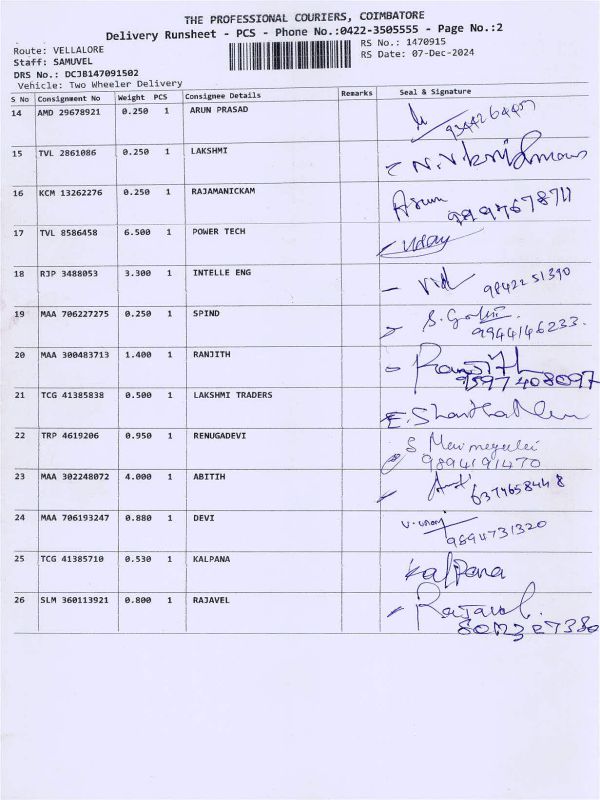 THE PROFESSIONAL COURIERS, COIMBATORE
Delivery Runsheet - PCS - Phone No.:0422-3505555 - Page No.:2
Route: VELLALORE
RS No.: 1470915
Staff: SAMUVEL
RS Date: 07-Dec-2024
DRS No.: DCJB147091502
Vehicle: Two Wheeler Delivery
S No Consignment No Weight PCS Consignee Details Remarks Seal & Signature
14 AMD 29678921 0.250 1 ARUN PRASAD
15 TVL 2861086 0.250 1 LAKSHMI
16 KCM 13262276 0.250 1 RAJAMANICKAM Arun
17 TVL 8586458 6.500 1 POWER TECH Uday
18 RJP 3488053 3.300 1 INTELLE ENG 9842251390
19 MAA 706227275 0.250 1 SPIND
9944146233.
20 MAA 300483713 1.400 1 RANJITH Ranjith
9597408097
21 TCG 41385838 0.500 1 LAKSHMI TRADERS
22 TRP 4619206 0.950 1 RENUGADEVI
9894191470
23 MAA 302248072 4.000 1 ABITIH
6374658448
24 MAA 706193247 0.880 1 DEVI
9894731320
25 TCG 41385710 0.530 1 KALPANA Kalpana
26 SLM 360113921 0.800 1 RAJAVEL Rajavel.